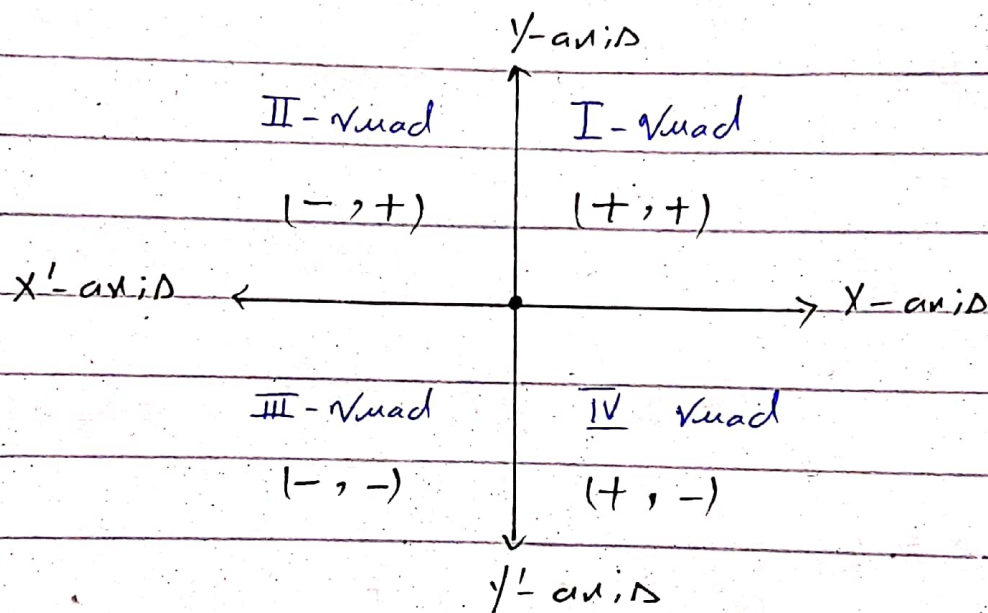 Y-axis
II - Quad I - Quad
(-, +) (+, +)
X'-axis X-axis
III - Quad IV Quad
(-, -) (+, -)
Y'-axis